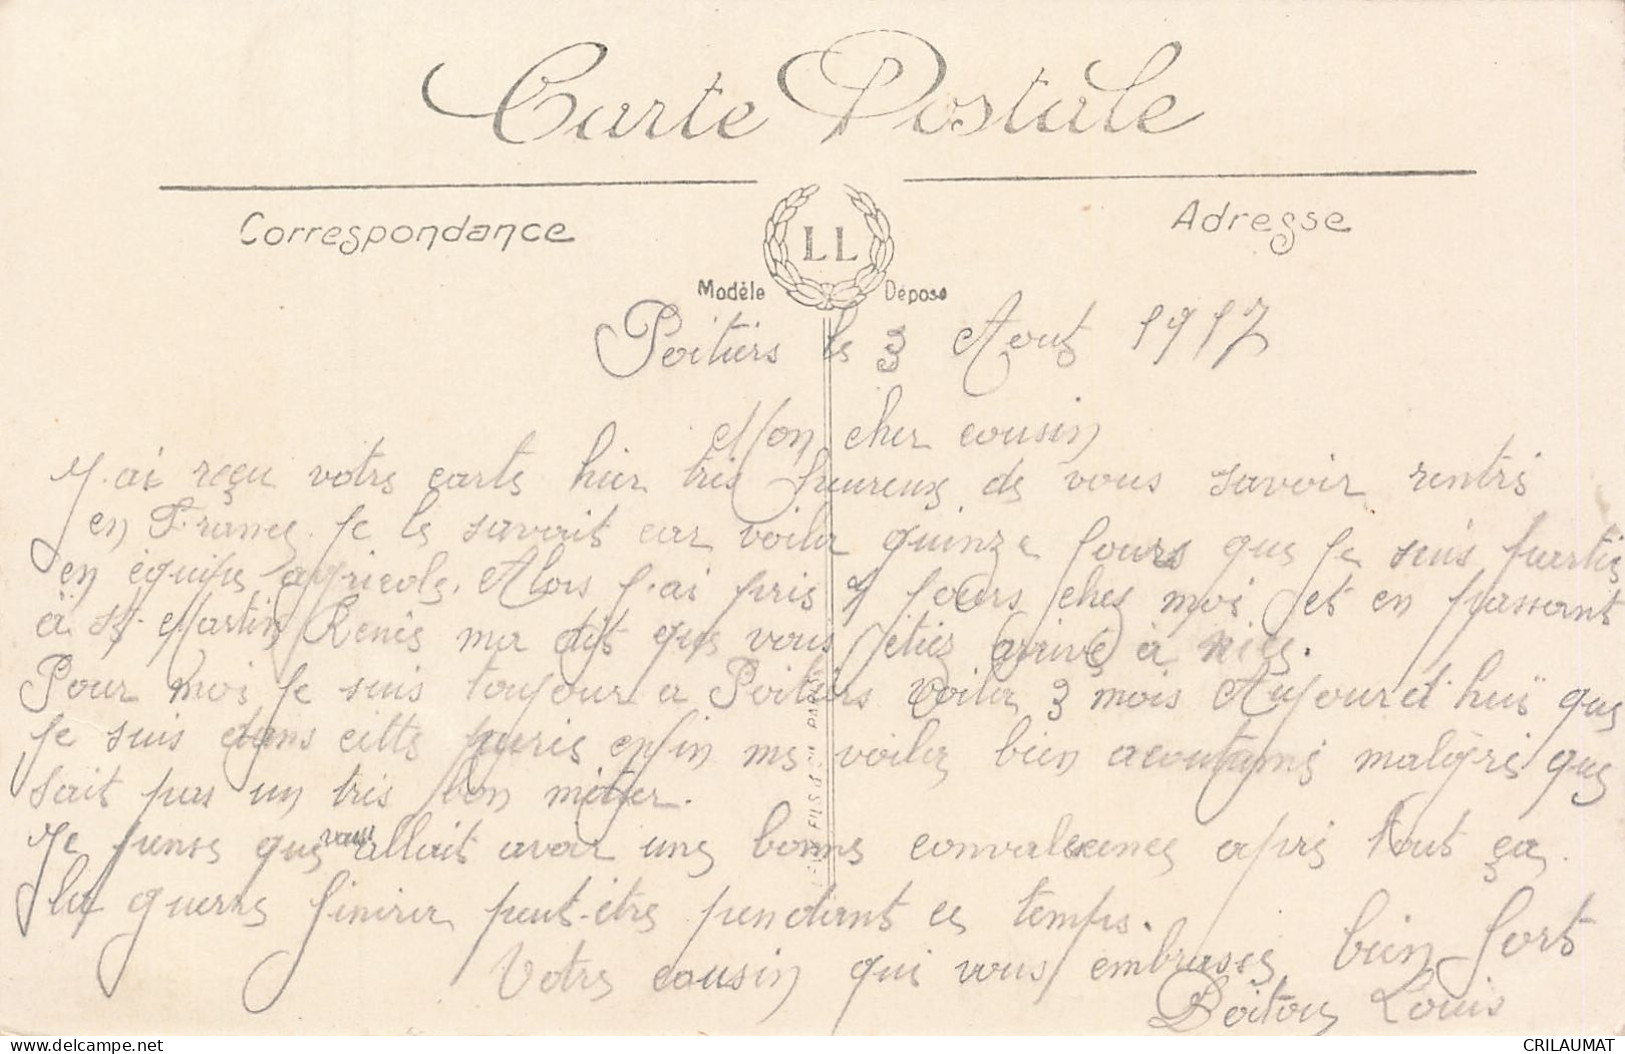 Carte Postale
Correspondance
Adresse
LL
Modèle Déposé
Poitiers le 3 Aout 1917
Mon cher cousin
J.ai reçu votre carte hier très heureux de vous savoir rentré
en France. Je le savait car voila quinze jours que je suis partie
en équipe agricole. Alors j.ai pris 7 jours chez moi et en passant
à St Martin Renée ma dit que vous étiez arrivé à nice.
Pour moi je suis toujour a Poitiers voila 3 mois Aujourd'hui que
je suis dans cette enfin me voila bien acoutumé malgré que
sait pas un très bon métier.
Je pense que vous allait avoir une bonne convalescence après tout ça.
la guerre finira peut-être pendant ce temps.
Votre cousin qui vous embrasse bien fort
Poitou Louis
CRILAUMAT